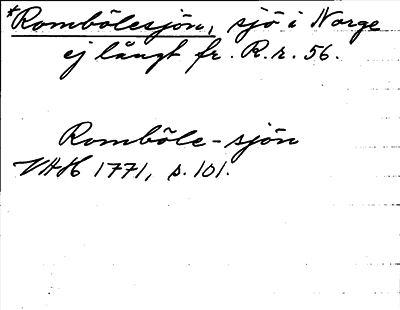 *Rombölesjön, sjö i Norge
ej långt fr. R.r. 56.
Romböle-sjön
VAH 1771, s. 101.